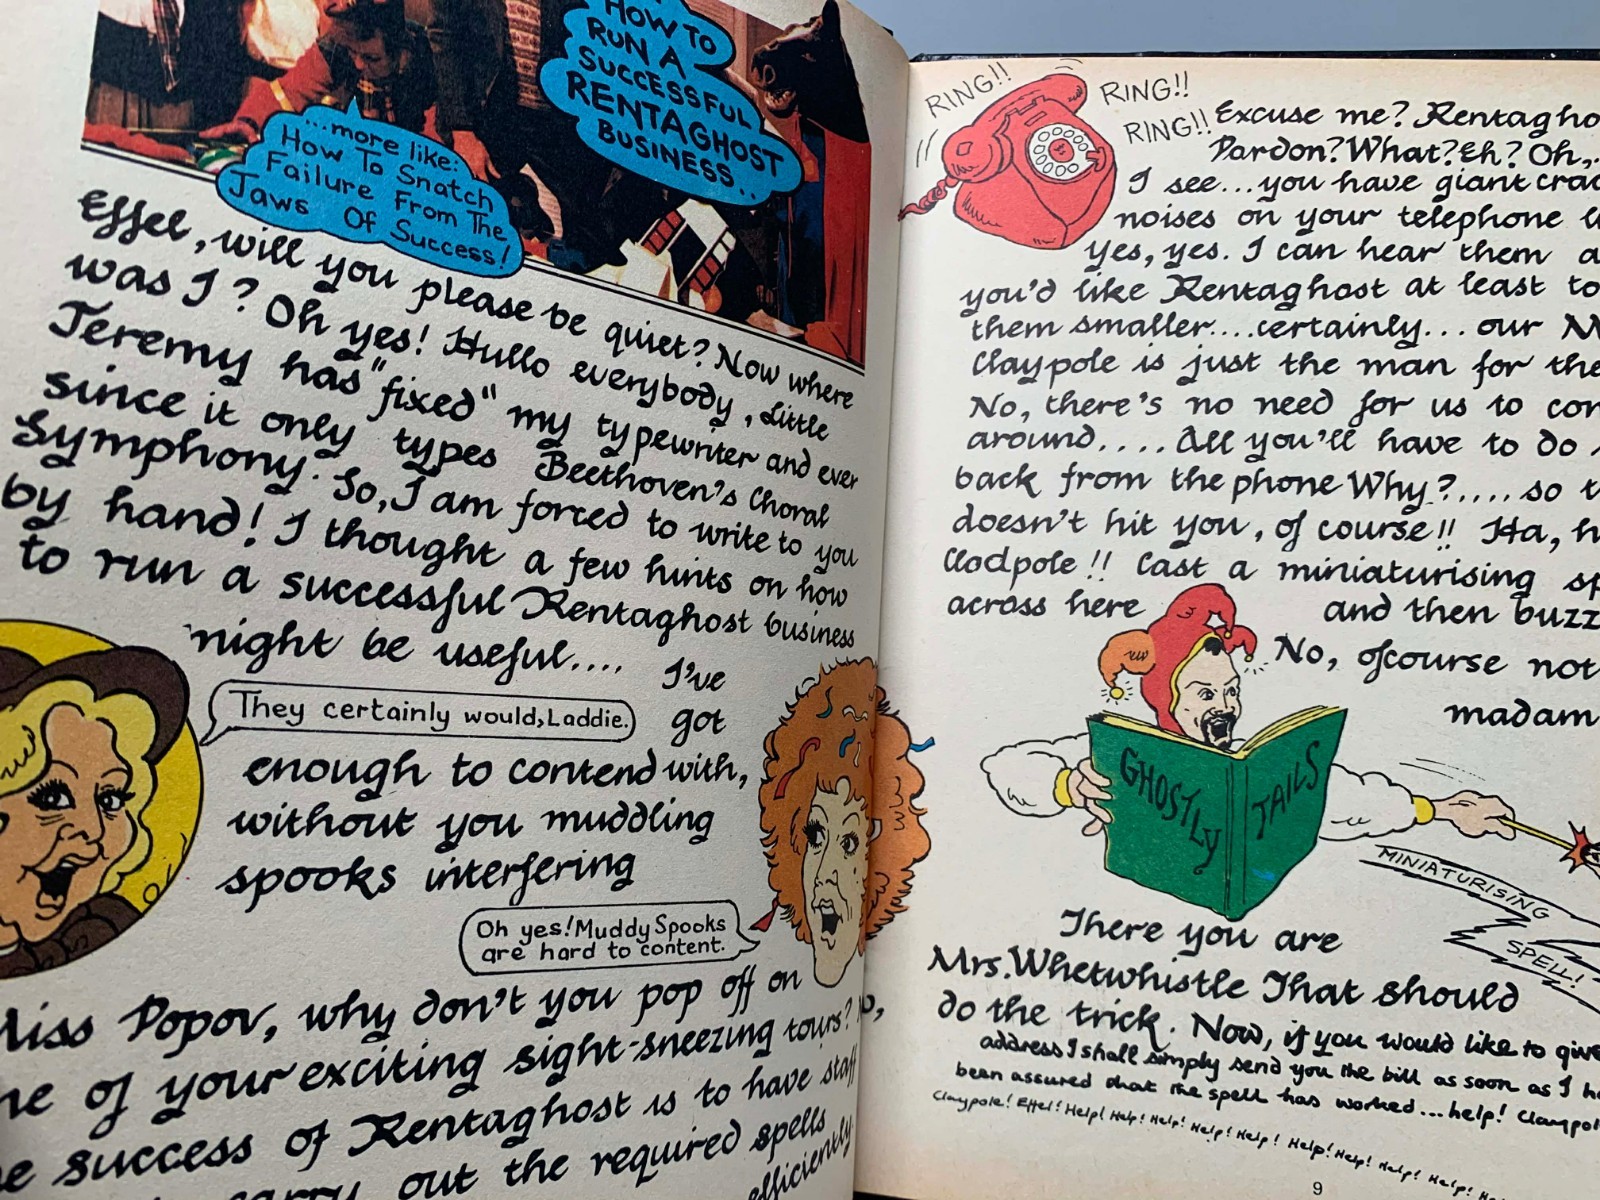 HOW TO
RUN A
SUCCESSFUL
RENTAGHOST
BUSINESS..
...more like:
How To Snatch
Failure From The
Jaws Of Success!
Effel, will you please be quiet? Now where
was I? Oh yes! Hullo everybody, Little
Jeremy has "fixed" my typewriter and ever
since it only types Beethoven's Choral
Symphony. So, I am forced to write to you
by hand! I thought a few hints on how
to run a successful Rentaghost business
might be useful....
They certainly would, Laddie.
I've
got
enough to contend with,
without you muddling
spooks interfering
Oh yes! Muddy Spooks
are hard to content.
Miss Popov, why don't you pop off on
one of your exciting sight-sneezing tours?
success of Rentaghost is to have staff
carry out the required spells
efficiently
RING!!
RING!!
RING!!
Excuse me? Rentagho
Pardon? What? Eh? Oh,..
I see...you have giant crac
noises on your telephone
Yes, yes. I can hear them
you'd like Rentaghost at least to
them smaller....certainly... our
Claypole is just the man for the
No, there's no need for us to
around.... All you'll have to do
back from the phone Why?.... so
doesn't hit you, of course!! Ha,
Clodpole!! Cast a miniaturising sp
across here and then buzz
No, ofcourse not
madam
GHOSTLY
TAILS
MINIATURISING
SPELL!
There you are
Mrs. Whetwhistle That should
do the trick. Now, if you would like to give
address I shall simply send you the bill as soon as I
been assured that the spell has worked...help!
Claypole! Effel! Help! Help! Help! Help! Help! Help! Help! Help! Help!
9